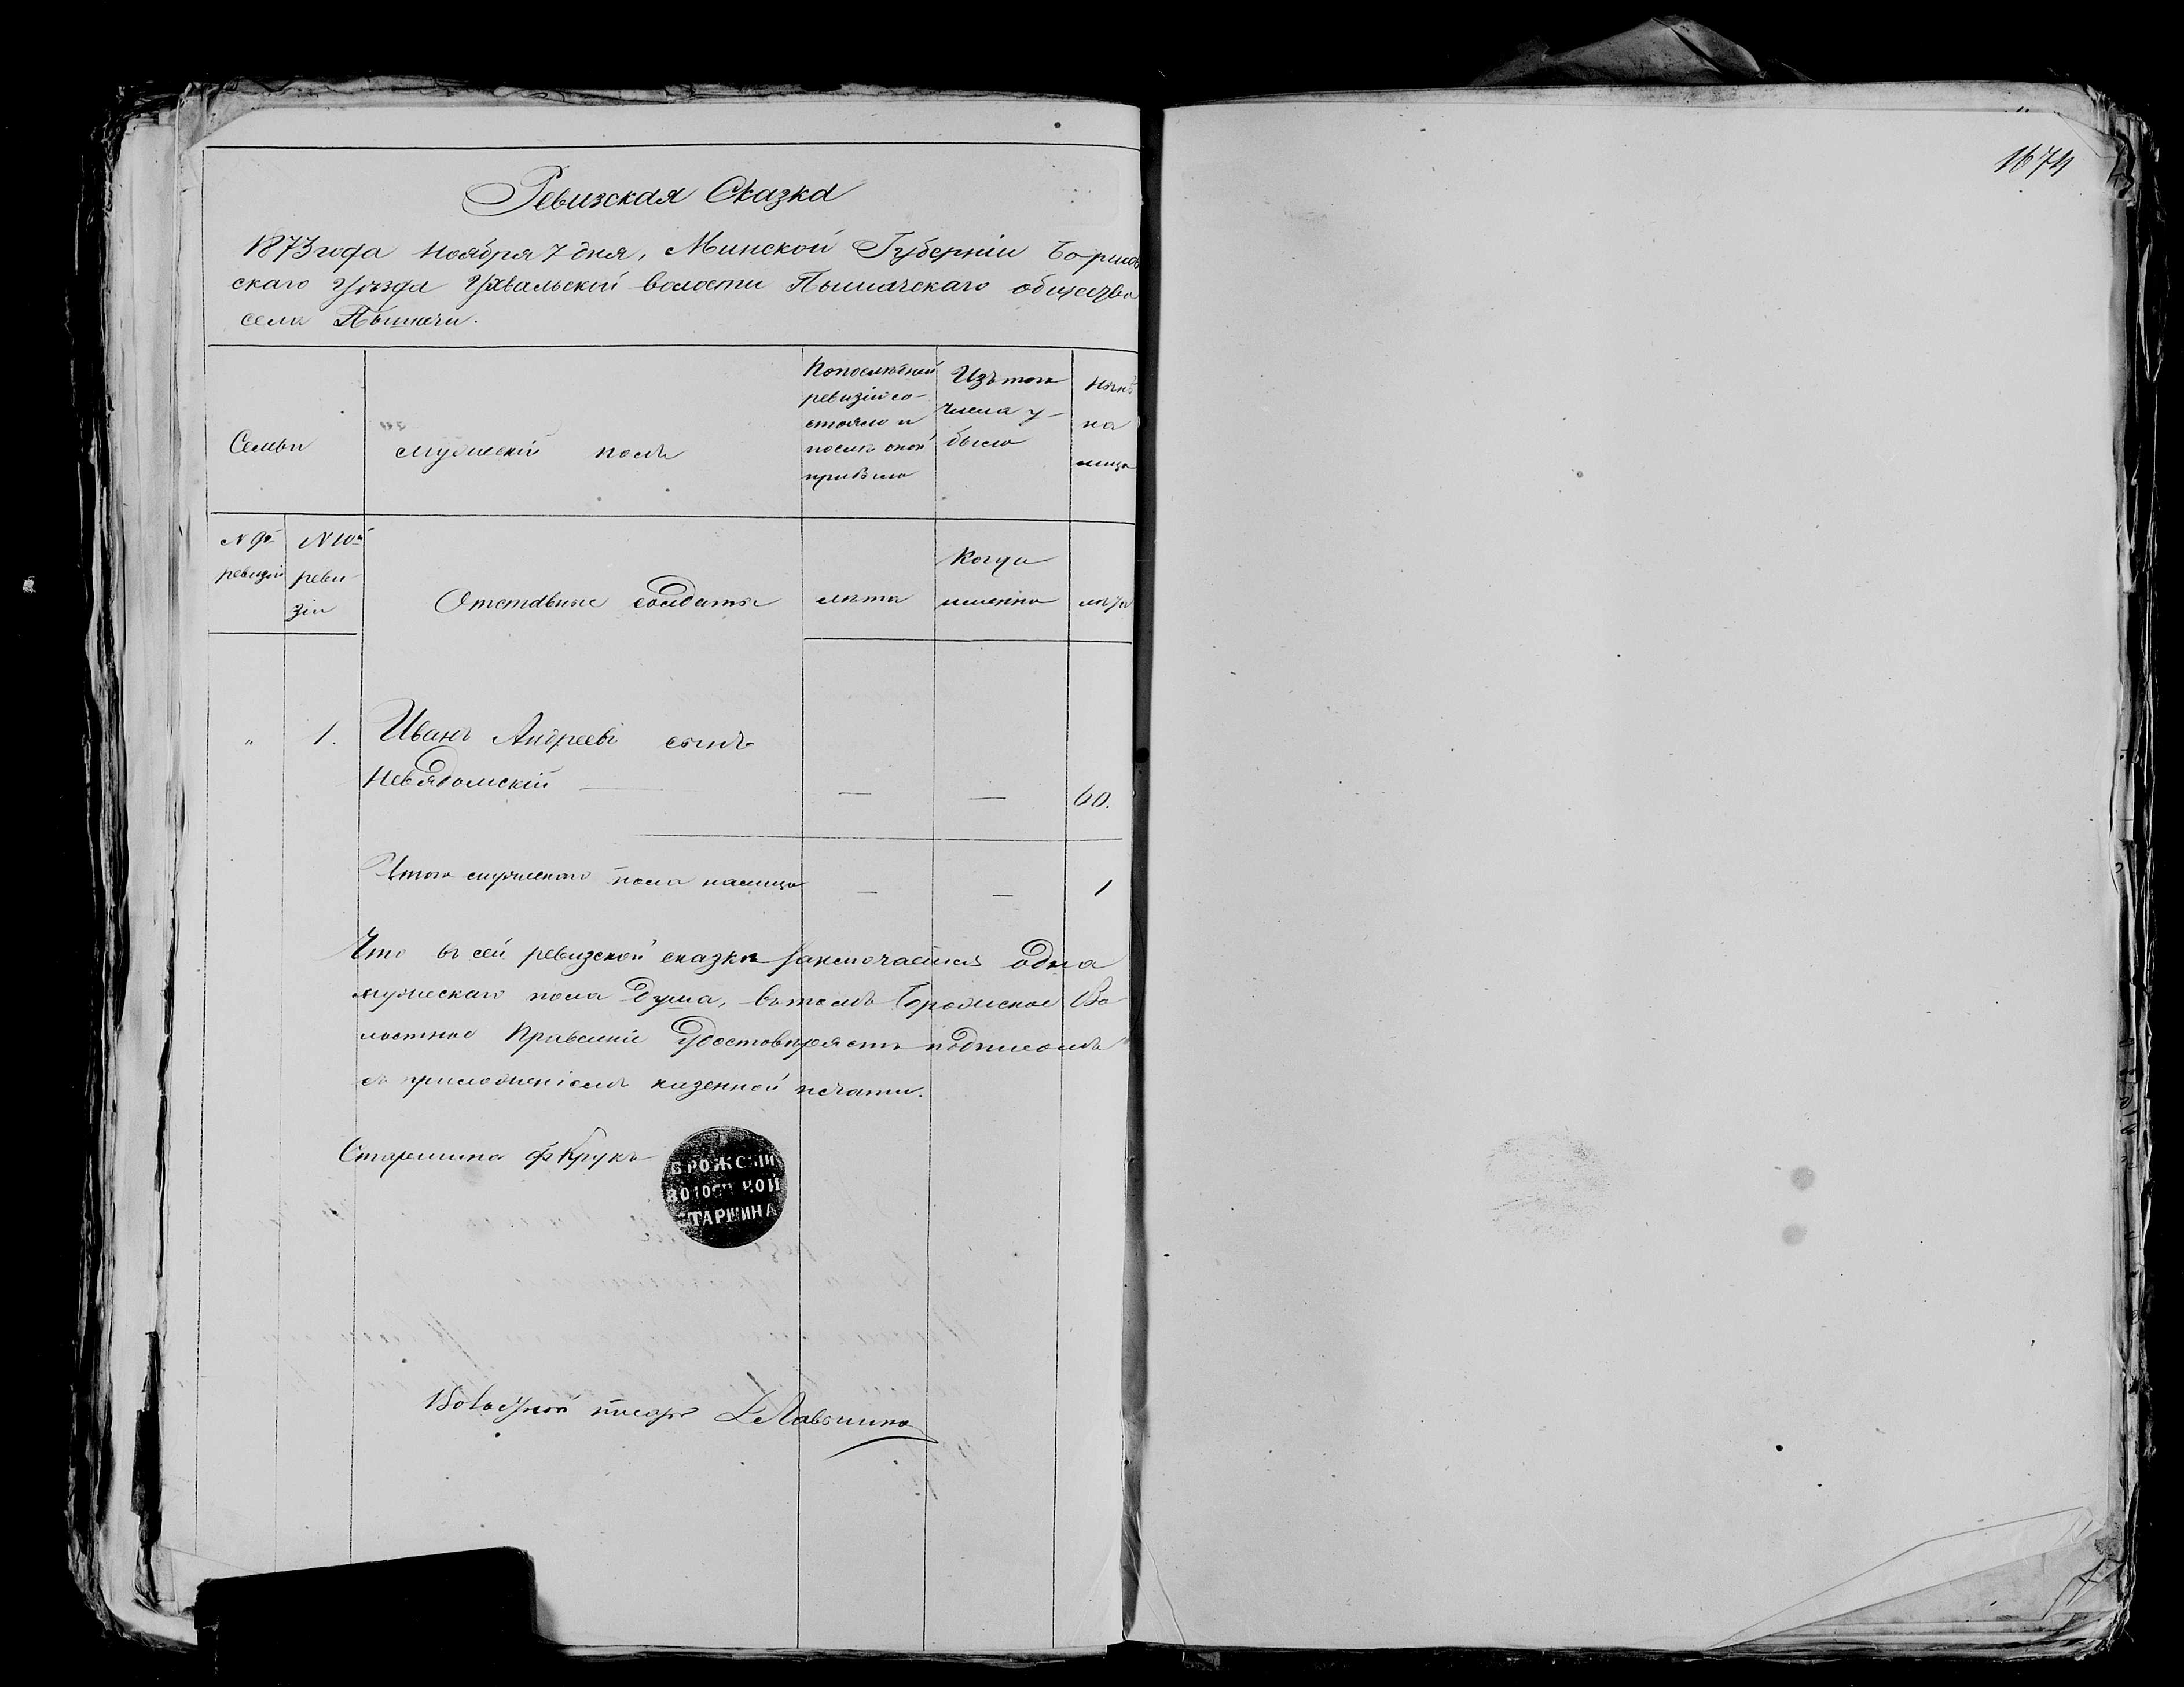 1674
Ревизская Сказка
1873 года Ноября 7 дня, Минской Губерніи Борисов
скаго Уѣзда Ухвальской волости Пышачскаго общества
села Пышачи.
Семьи
Мужескій полъ
Попослѣдней
ревизіи со-
стояло и
послѣ оной
прибыло
Изъ того
числа у-
было
Нынѣ
на
лицо
N 9й
ревизіи
N 10й
реви-
зіи
Отставные солдаты
лѣта
Когда
именно
лѣта
" 1. Иванъ Андреевъ сынъ
Невядомскій — — — 60.
Итого мужескаго пола налицо — — 1
Что въ сей ревизской сказкѣ заключается одна
мужескаго пола душа, въ томъ Брожское Во
лостное Правленіе удостовѣряетъ подписомъ
съ приложеніемъ казенной печати.
Старшина Ф Крукъ
БРОЖСКІЙ
ВОЛОСТНОЙ
СТАРШИНА
Волостной писарь